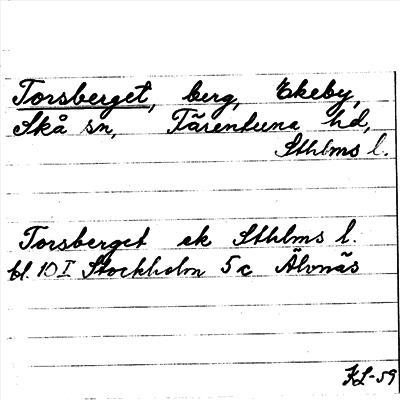 Torsberget, berg, Ekeby,
Skå sn, Färentuna hd,
Sthlms l.
Torsberget ek Sthlms l.
bl. 10 I Stockholm 5 c Älvnäs
KL-59